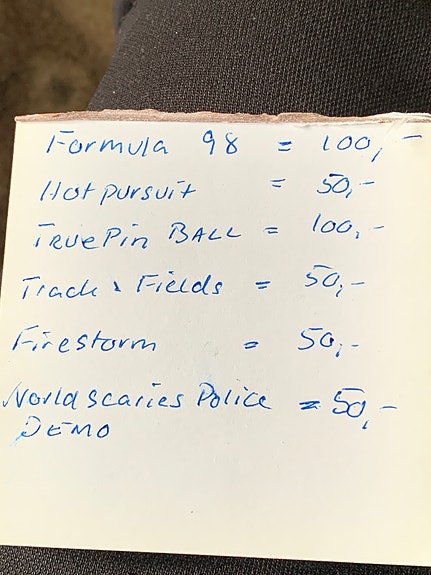 Formula 98 = 100,-
Hot pursuit = 50,-
TRUE Pin BALL = 100,-
Track & Fields = 50,-
Firestorm = 50,-
World scaries Police = 50,-
DEMO